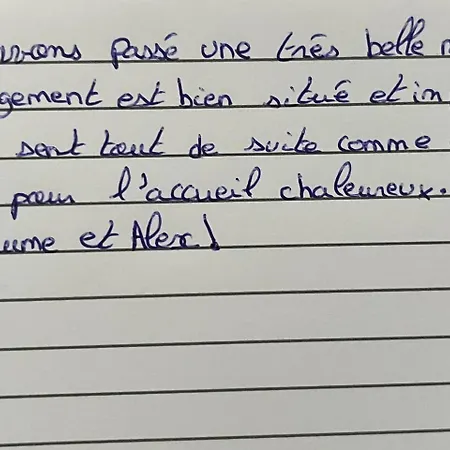 avons passé une très belle n
gement est bien situé et im
sent tout de suite comme
pour l'accueil chaleureux.
ume et Alex!